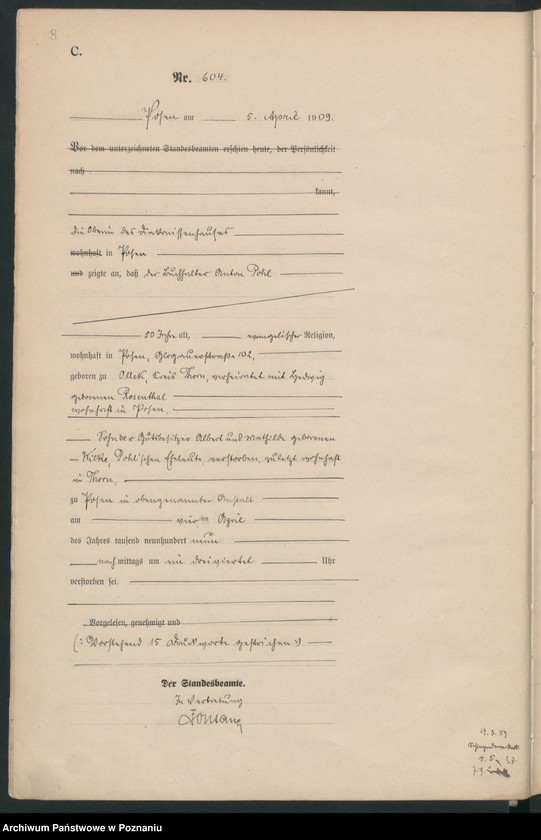 8
C.
Nr. 604.
Posen am 5. April 1909.
Vor dem unterzeichneten Standesbeamten erschien heute, der Persönlichkeit
nach
kannt,
die Oberin des Diakonissenhauses
wohnhaft in Posen
und zeigte an, daß der Buchhalter Anton Pohl
50 Jahre alt, evangelischer Religion,
wohnhaft in Posen, Glogauerstraße 102,
geboren zu Ollek, Kreis Thorn, verheiratet mit Hedwig
geborenen Rosenthal
wohnhaft in Posen.
Sohn der Gutsbesitzer Albert und Mathilde geborenen
Wilke, Pohl'schen Eheleute, verstorben, zuletzt wohnhaft
in Thorn,
zu Posen in obengenannter Anstalt
am vierten April
des Jahres tausend neunhundert neun
nachmittags um ein dreiviertel Uhr
verstorben sei.
Vorgelesen, genehmigt und
(: Vorstehend 15 Druckworte gestrichen :)
Der Standesbeamte.
In Vertretung
Fontane
Archiwum Państwowe w Poznaniu